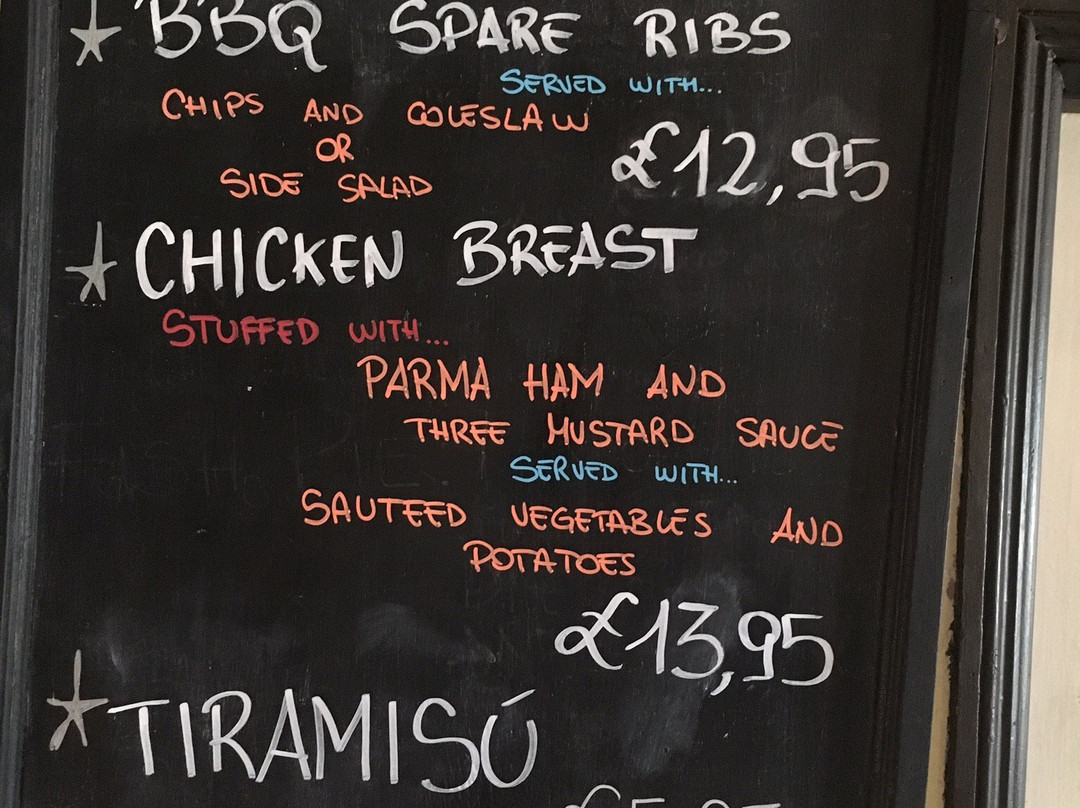 BBQ SPARE RIBS
SERVED WITH...
CHIPS AND COLESLAW
OR
SIDE SALAD
£12,95
CHICKEN BREAST
STUFFED WITH...
PARMA HAM AND
THREE MUSTARD SAUCE
SERVED WITH...
SAUTEED VEGETABLES AND
POTATOES
£13,95
TIRAMISÚ